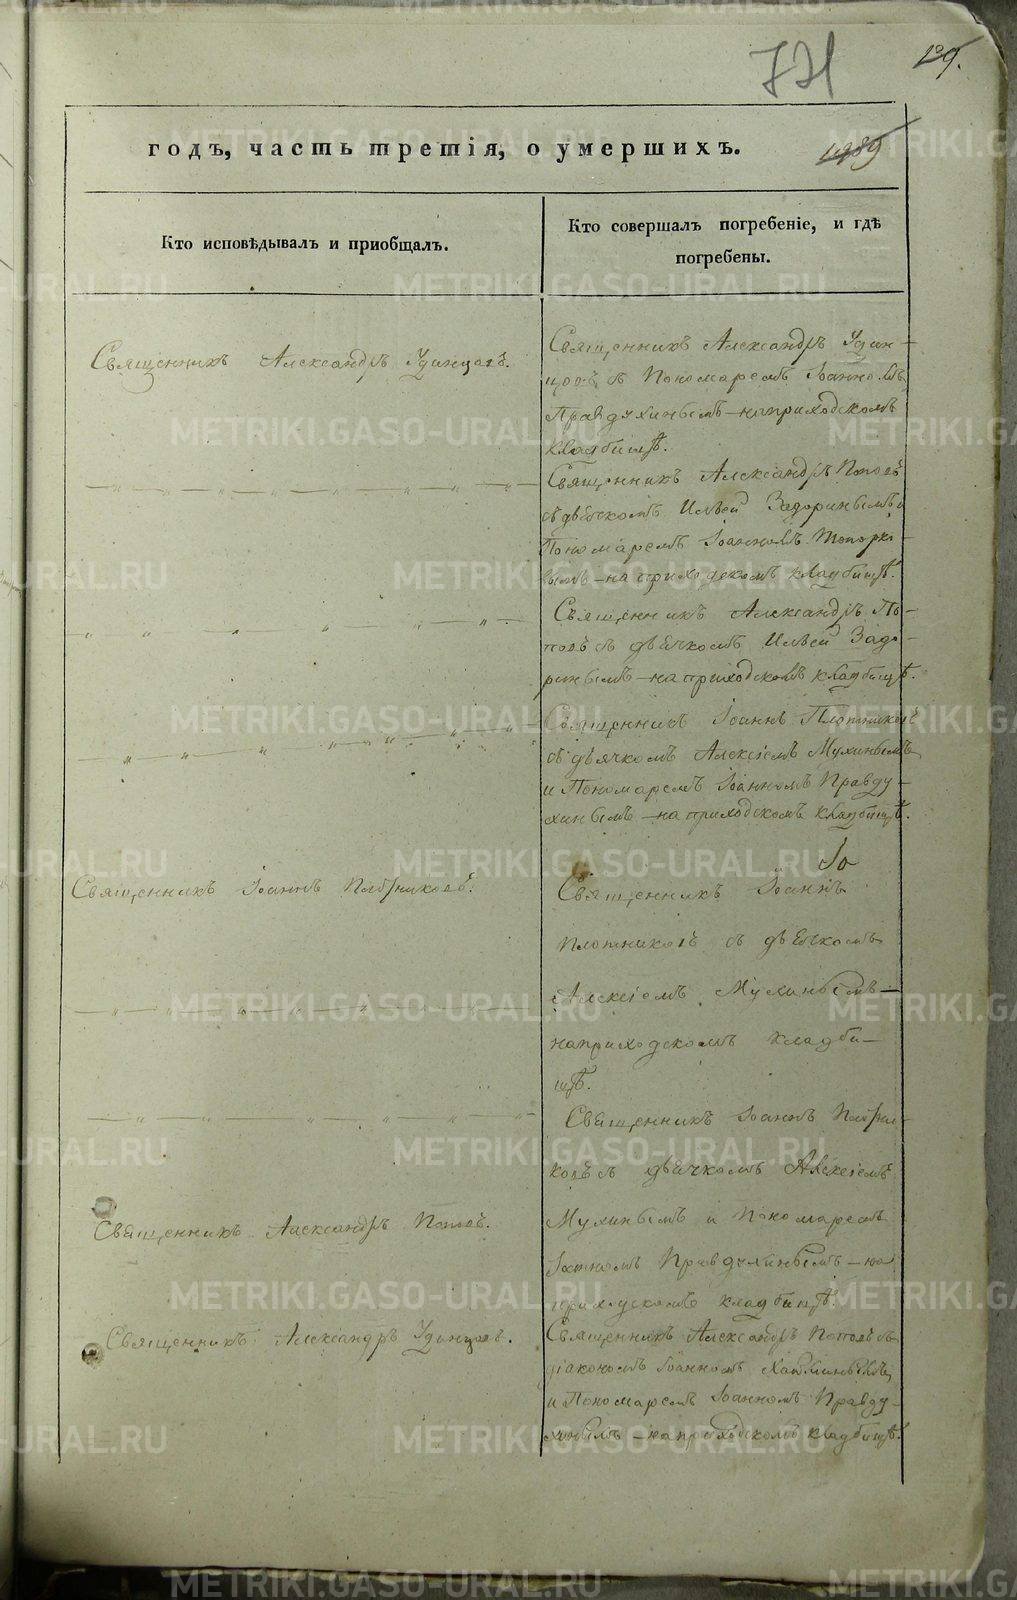 771
129.
годъ, часть третія, о умершихъ.
1989
Кто исповѣдывалъ и приобщалъ.
Кто совершалъ погребеніе, и гдѣ
погребены.
Священникъ Александръ Удинцовъ.
Священникъ Александръ Удин-
цовъ съ Пономаремъ Іоанномъ
Правдухинымъ – на приходскомъ
кладбищѣ.
Священникъ Александръ Поповъ
съ дьячкомъ Ильей Задоринымъ и
Пономаремъ Іоанномъ
– на приходскомъ кладбищѣ.
Священникъ Александръ По-
повъ съ дьячкомъ Ильей Задо-
ринымъ – на приходскомъ кладбищѣ.
Священникъ Іоаннъ Плотниковъ
съ дьячкомъ Алексіемъ Мухинымъ
и Пономаремъ Іоанномъ Правду-
хинымъ – на приходскомъ кладбищѣ.
Священникъ Іоаннъ Плотниковъ.
Іо
Священникъ Іоаннъ
Плотниковъ съ дьячкомъ
Алексіемъ Мухинымъ –
на приходскомъ кладби-
щѣ.
Священникъ Іоаннъ Плотни-
ковъ съ дьячкомъ Алексіемъ
Священникъ Александръ Поповъ.
Мухинымъ и Пономаремъ
Іоанномъ Правдухинымъ – на
приходскомъ кладбищѣ.
Священникъ Александръ Удинцовъ.
Священникъ Александръ Поповъ съ
діакономъ Іоанномъ
и Пономаремъ Іоанномъ Правду-
хинымъ – на приходскомъ кладбищѣ.
METRIKI.GASO-URAL.RU